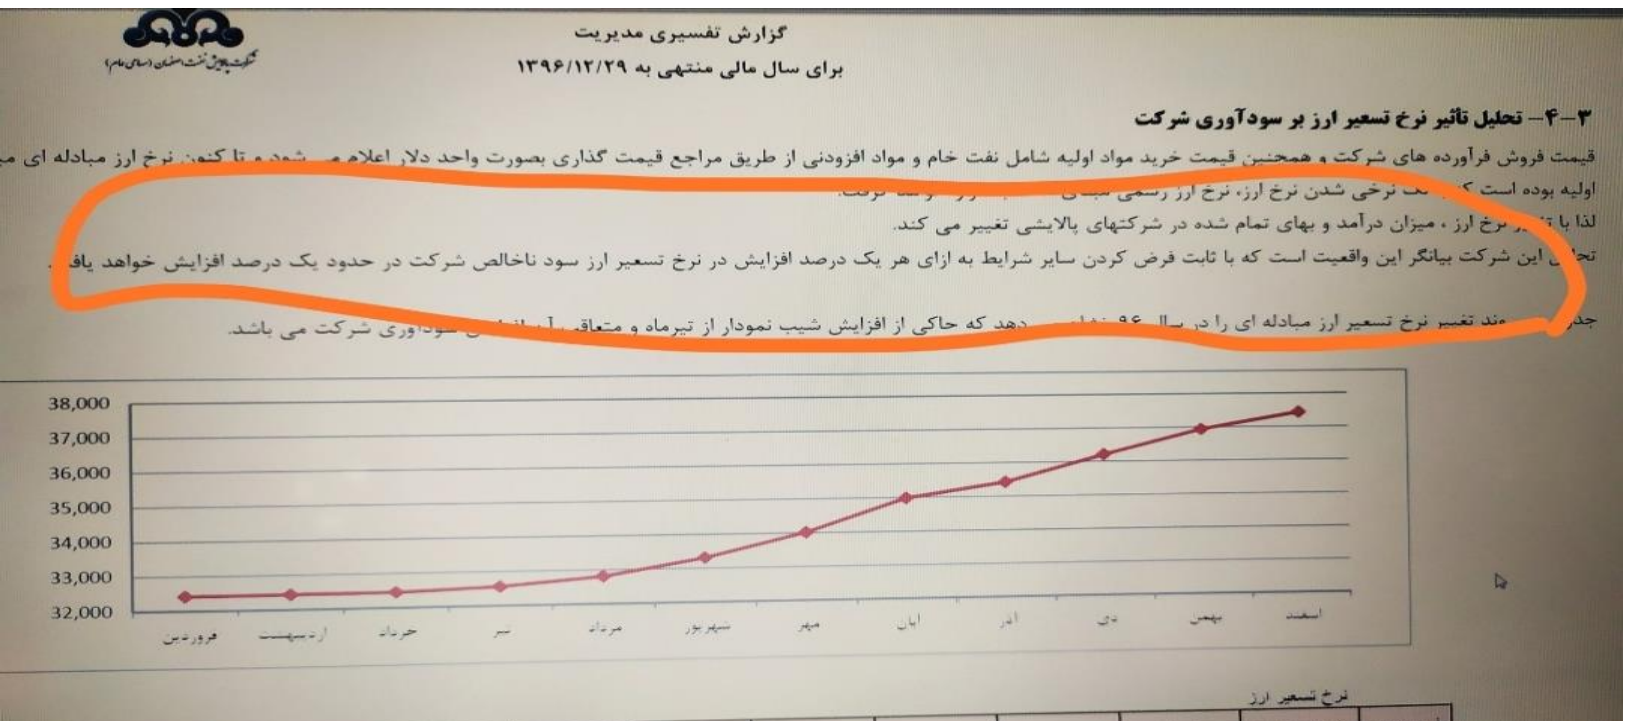 شرکت پالایش نفت اصفهان (سهامی عام)
گزارش تفسیری مدیریت
برای سال مالی منتهی به ۱۳۹۶/۱۲/۲۹
۳-۴- تحلیل تأثیر نرخ تسعیر ارز بر سودآوری شرکت
قیمت فروش فرآورده های شرکت و همچنین قیمت خرید مواد اولیه شامل نفت خام و مواد افزودنی از طریق مراجع قیمت گذاری بصورت واحد دلار اعلام می شود و تا کنون نرخ ارز مبادله ای
اولیه بوده است نرخی شدن نرخ ارز، نرخ ارز رسمی مبنای گرفت.
لذا با نرخ ارز ، میزان درآمد و بهای تمام شده در شرکتهای پالایشی تغییر می کند.
این شرکت بیانگر این واقعیت است که با ثابت فرض کردن سایر شرایط به ازای هر یک درصد افزایش در نرخ تسعیر ارز سود ناخالص شرکت در حدود یک درصد افزایش خواهد
روند تغییر نرخ تسعیر ارز مبادله ای را در سال ۹۶ دهد که حاکی از افزایش شیب نمودار از تیرماه و متعاقب سودآوری شرکت می باشد.
38,000
37,000
36,000
35,000
34,000
33,000
32,000
فروردین اردیبهشت خرداد تیر مرداد شهریور مهر آبان آذر دی بهمن اسفند
نرخ تسعیر ارز